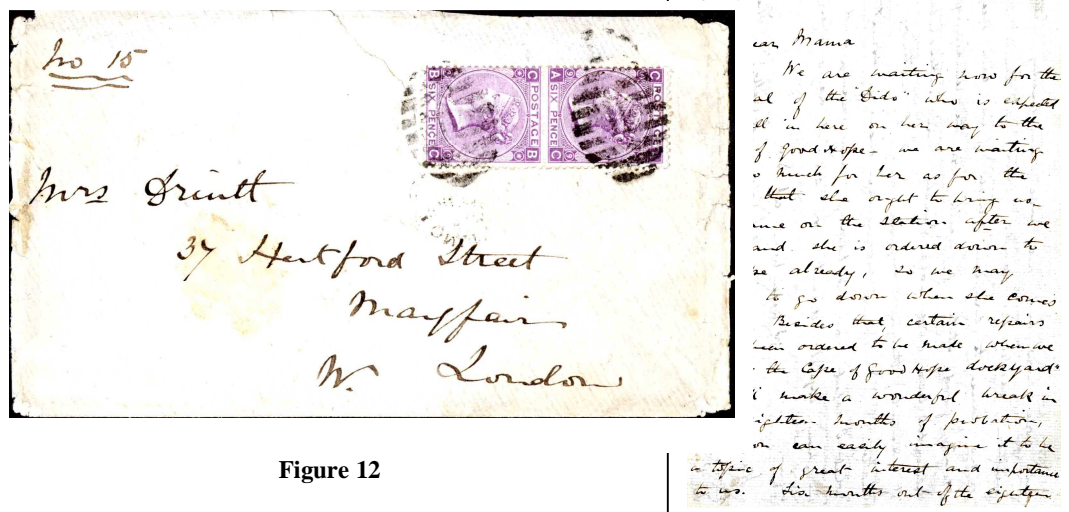 No 15
B SIX PENCE C
C POSTAGE B
A SIX PENCE C
Mrs
37 Hertford Street
Mayfair
W. London
Figure 12
ear Mama
We are waiting now for the
al of the "Dido" who is expected
ll in here on her way to the
of Good Hope - we are waiting
o much for her as for the
that she ought to bring us
ume on the station after we
and she is ordered down to
se already, so we may
to go down when she comes
Besides that, certain repairs
been ordered to be made "when we
the Cape of Good Hope dockyard"
l make a wonderful break in
ighteen months of probation,
ou can easily imagine it to be
a topic of great interest and importance
to us. Six months out of the eighteen